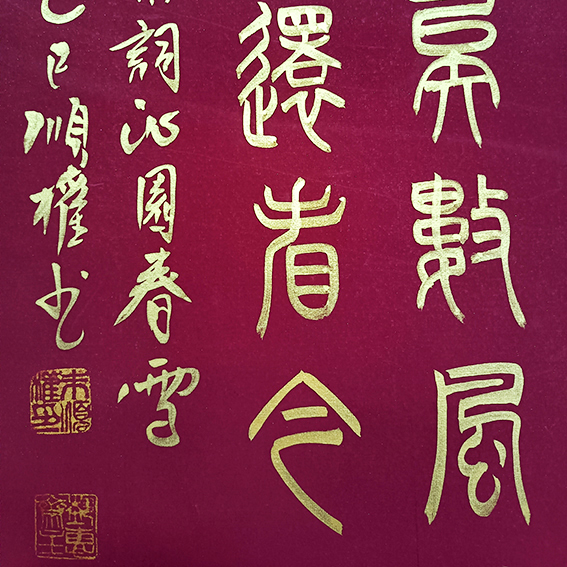 數風
還看今
詞沁園春雪
巳順權书